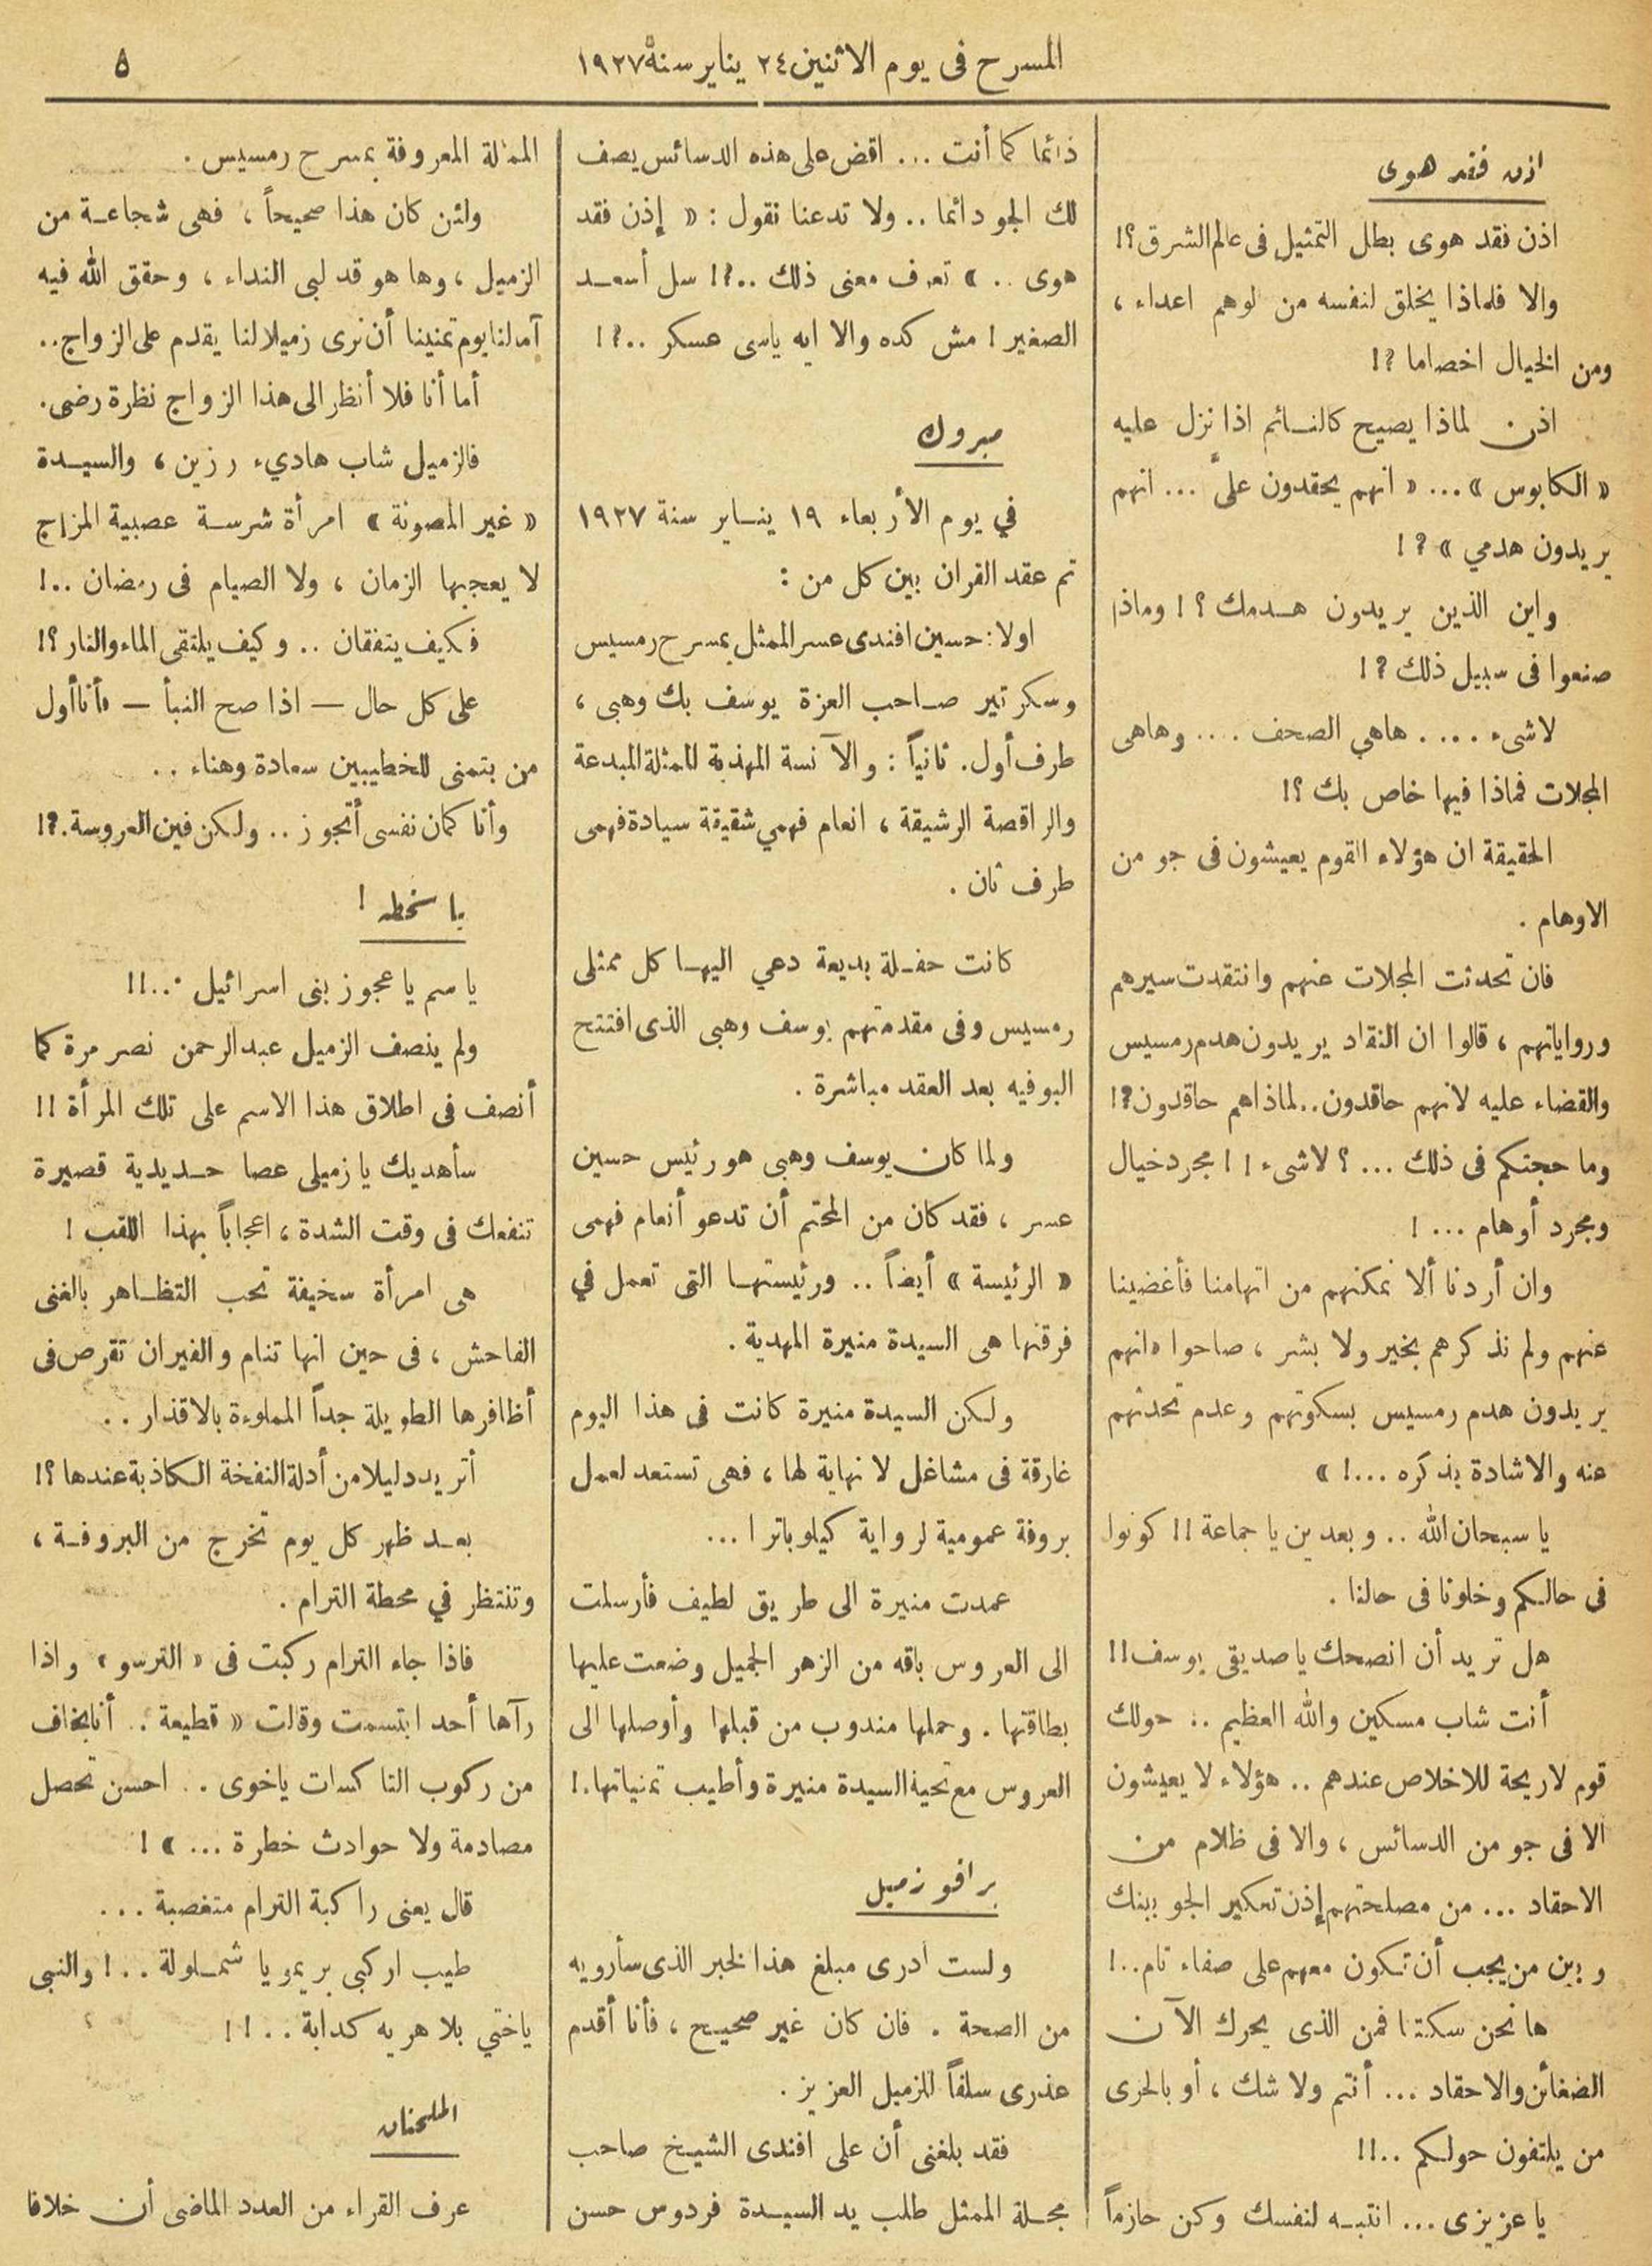 المسرح فى يوم الاثنين ٢٤ يناير سنة ١٩٢٧
٥
اذن فقد هوى
اذن فقد هوى بطل التمثيل فى عالم الشرق؟!
والا فلماذا يخلق لنفسه من لوهم اعداء ،
ومن الخيال اخصاما ؟!
اذن لماذا يصيح كالنائم اذا نزل عليه
« الكابوس » ... « انهم يحقدون علىّ ... انهم
يريدون هدمي » ؟!
واين الذين يريدون هدمك ؟! وماذا
صنعوا فى سبيل ذلك ؟!
لاشىء .... هاهي الصحف .... وهاهى
المجلات فماذا فيها خاص بك ؟!
الحقيقة ان هؤلاء القوم يعيشون فى جو من
الاوهام .
فان تحدثت المجلات عنهم وانتقدت سيرهم
ورواياتهم ، قالوا ان النقاد يريدون هدم رمسيس
والقضاء عليه لانهم حاقدون.. لماذاهم حاقدون؟!
وما حجتكم فى ذلك ... ؟ لاشىء !! مجرد خيال
ومجرد أوهام ... !
وان أردنا ألا نمكنهم من اتهامنا فأغضينا
عنهم ولم نذكرهم بخير ولا بشر ، صاحوا «انهم
يريدون هدم رمسيس بسكوتهم وعدم تحدثهم
عنه والاشادة بذكره ...! »
يا سبحان الله .. وبعدين يا جماعة !! كونوا
فى حالكم وخلونا فى حالنا .
هل تريد أن انصحك يا صديقى يوسف!!
أنت شاب مسكين والله العظيم .. حولك
قوم لاريحة للاخلاص عندهم .. هؤلاء لا يعيشون
الا فى جو من الدسائس ، والا فى ظلام من
الاحقاد ... من مصلحتهم إذن تعكير الجو بينك
وبين من يجب أن تكون معهم على صفاء تام..!
ها نحن سكتنا فمن الذى يحرك الآن
الضغائن والاحقاد ... أنتم ولا شك ، أو بالحرى
من يلتفون حولكم ..!!
يا عزيزى ... انتبه لنفسك وكن حازماً
دائما كما أنت ... اقض على هذه الدسائس يصف
لك الجو دائما .. ولا تدعنا نقول : « إذن فقد
هوى .. » تعرف معنى ذلك ..؟! سل أسعد
الصغير ! مش كده والا ايه ياسى عسكر ..؟!
مبروك
في يوم الأربعاء ١٩ يناير سنة ١٩٢٧
تم عقد القران بين كل من :
اولا : حسين افندى عسر الممثل بمسرح رمسيس
وسكرتير صاحب العزة يوسف بك وهبى ،
طرف أول . ثانياً : والآنسة المهذبة الممثلة المبدعة
والراقصة الرشيقة ، انعام فهمي شقيقة سيادة فهمى
طرف ثان .
كانت حفلة بديعة دعي اليها كل ممثلى
رمسيس وفى مقدمتهم يوسف وهبى الذى افتتح
البوفيه بعد العقد مباشرة .
ولما كان يوسف وهبى هو رئيس حسين
عسر ، فقد كان من المحتم أن تدعو أنعام فهمى
« الرئيسة » أيضاً .. ورئيستها التى تعمل في
فرقتها هى السيدة منيرة المهدية .
ولكن السيدة منيرة كانت فى هذا اليوم
غارقة فى مشاغل لا نهاية لها ، فهى تستعد لعمل
بروفة عمومية لرواية كيلوباترا ...
عمدت منيرة الى طريق لطيف فأرسلت
الى العروس باقه من الزهر الجميل وضعت عليها
بطاقتها . وحملها مندوب من قبلها وأوصلها الى
العروس مع تحية السيدة منيرة وأطيب تمنياتها.!
برافو زميل
ولست ادرى مبلغ هذا الخبر الذى سأرويه
من الصحة . فان كان غير صحيح ، فأنا أقدم
عذرى سلفاً للزميل العزيز .
فقد بلغنى أن على افندى الشيخ صاحب
مجلة الممثل طلب يد السيدة فردوس حسن
الممثلة المعروفة بمسرح رمسيس .
ولئن كان هذا صحيحاً ، فهى شجاعة من
الزميل ، وها هو قد لبى النداء ، وحقق الله فيه
آمالنا يوم تمنينا أن نرى زميلا لنا يقدم على الزواج..
أما أنا فلا أنظر الى هذا الزواج نظرة رضى.
فالزميل شاب هاديء رزين ، والسيدة
« غير المصونة » امرأة شرسة عصبية المزاج
لا يعجبها الزمان ، ولا الصيام فى رمضان ..!
فكيف يتفقان .. وكيف يلتقى الماء والنار؟!
على كل حال — اذا صح النبأ — فأنا أول
من يتمنى للخطيبين سعادة وهناء ..
وأنا كمان نفسى أتجوز .. ولكن فين العروسة.؟!
يا سخطه !
يا سم يا عجوز بنى اسرائيل ..!!
ولم ينصف الزميل عبد الرحمن نصر مرة كما
أنصف فى اطلاق هذا الاسم على تلك المرأة !!
سأهديك يا زميلى عصا حديدية قصيرة
تنفعك فى وقت الشدة ، اعجاباً بهذا اللقب !
هى امرأة سخيفة تحب التظاهر بالغنى
الفاحش ، فى حين انها تنام والفيران تقرص فى
أظافرها الطويلة جداً المملوءة بالاقذار ..
أتريد دليلا من أدلة النفخة الكاذبة عندها ؟!
بعد ظهر كل يوم تخرج من البروفة ،
وتنتظر في محطة الترام .
فاذا جاء الترام ركبت فى « الترسو » واذا
رآها أحد ابتسمت وقالت « قطيعة .. أنا بخاف
من ركوب التاكسات ياخوى .. احسن تحصل
مصادمة ولا حوادث خطرة ... » !
قال يعنى راكبة الترام متغصبة ...
طيب اركبى بريمو يا شملولة ..! والنبى
ياختي بلا هريه كدابة ..!!
الملحنان
عرف القراء من العدد الماضى أن خلافا